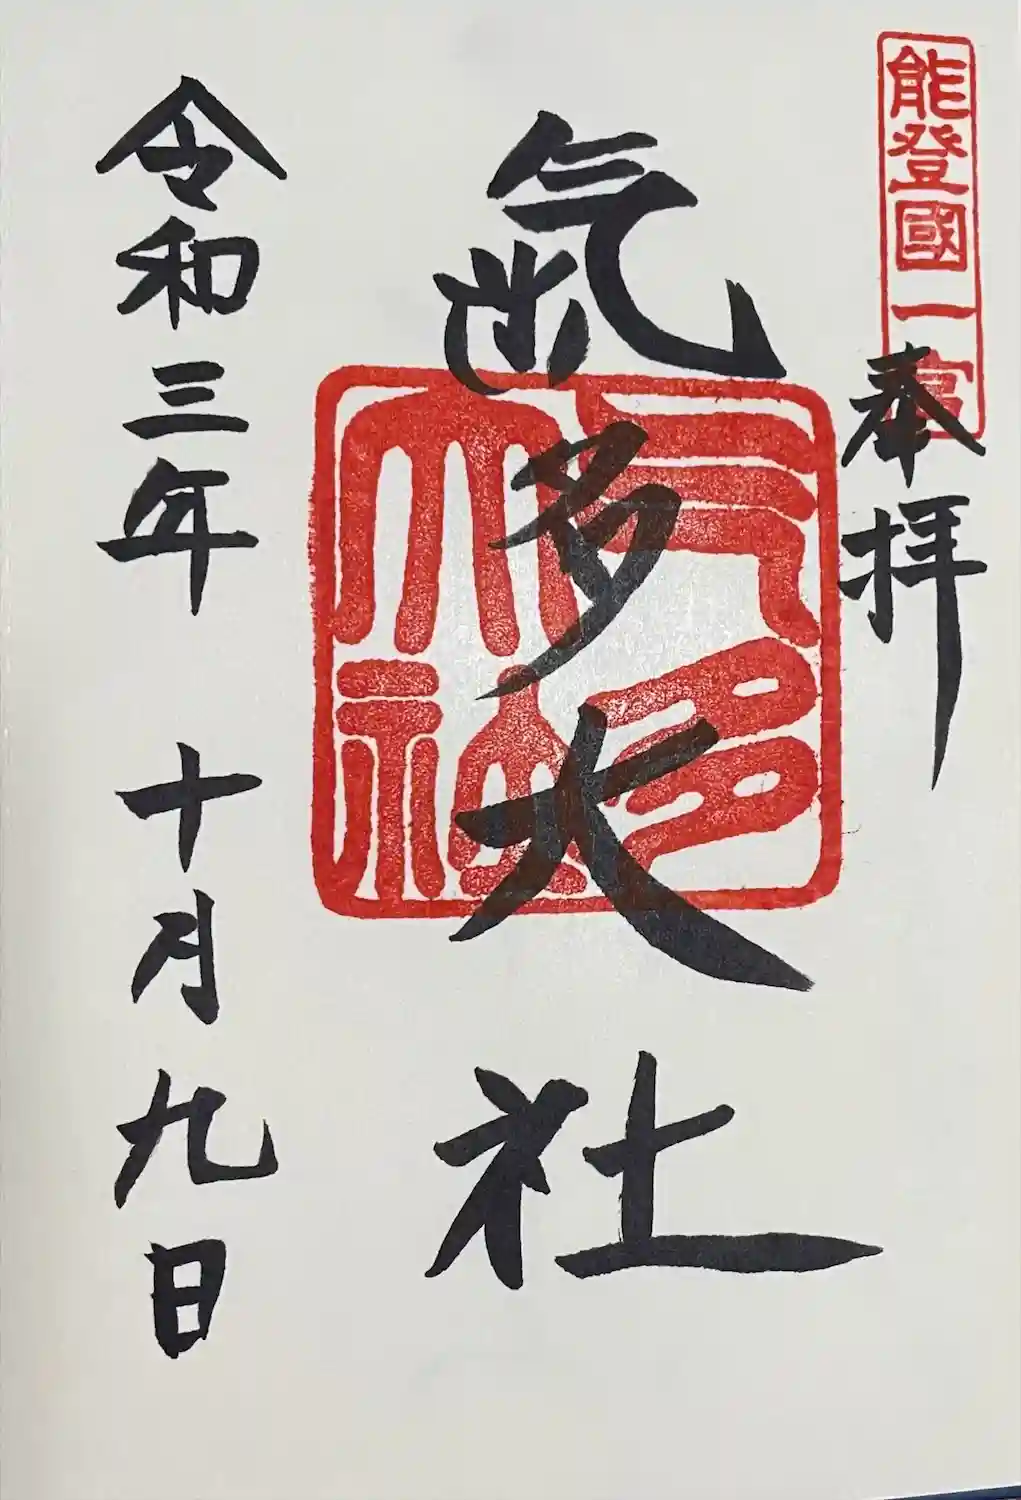 能登國一宮
奉拝
氣多大社
気多大社
令和三年 十月九日